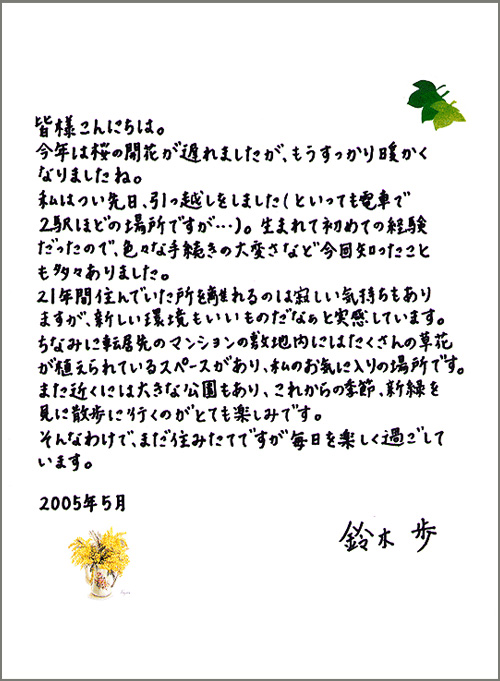 皆様こんにちは。
今年は桜の開花が遅れましたが、もうすっかり暖かく
なりましたね。
私はつい先日、引っ越しをしました(といっても電車で
2駅ほどの場所ですが…)。生まれて初めての経験
だったので、色々な手続きの大変さなど今回知ったこと
も多々ありました。
21年間住んでいた所を離れるのは寂しい気持ちもあり
ますが、新しい環境もいいものだなぁと実感しています。
ちなみに転居先のマンションの敷地内にはたくさんの草花
が植えられているスペースがあり、私のお気に入りの場所です。
また近くには大きな公園もあり、これからの季節、新緑を
見に散歩に行くのがとても楽しみです。
そんなわけで、まだ住みたてですが毎日を楽しく過ごして
います。
2005年5月
鈴木 歩